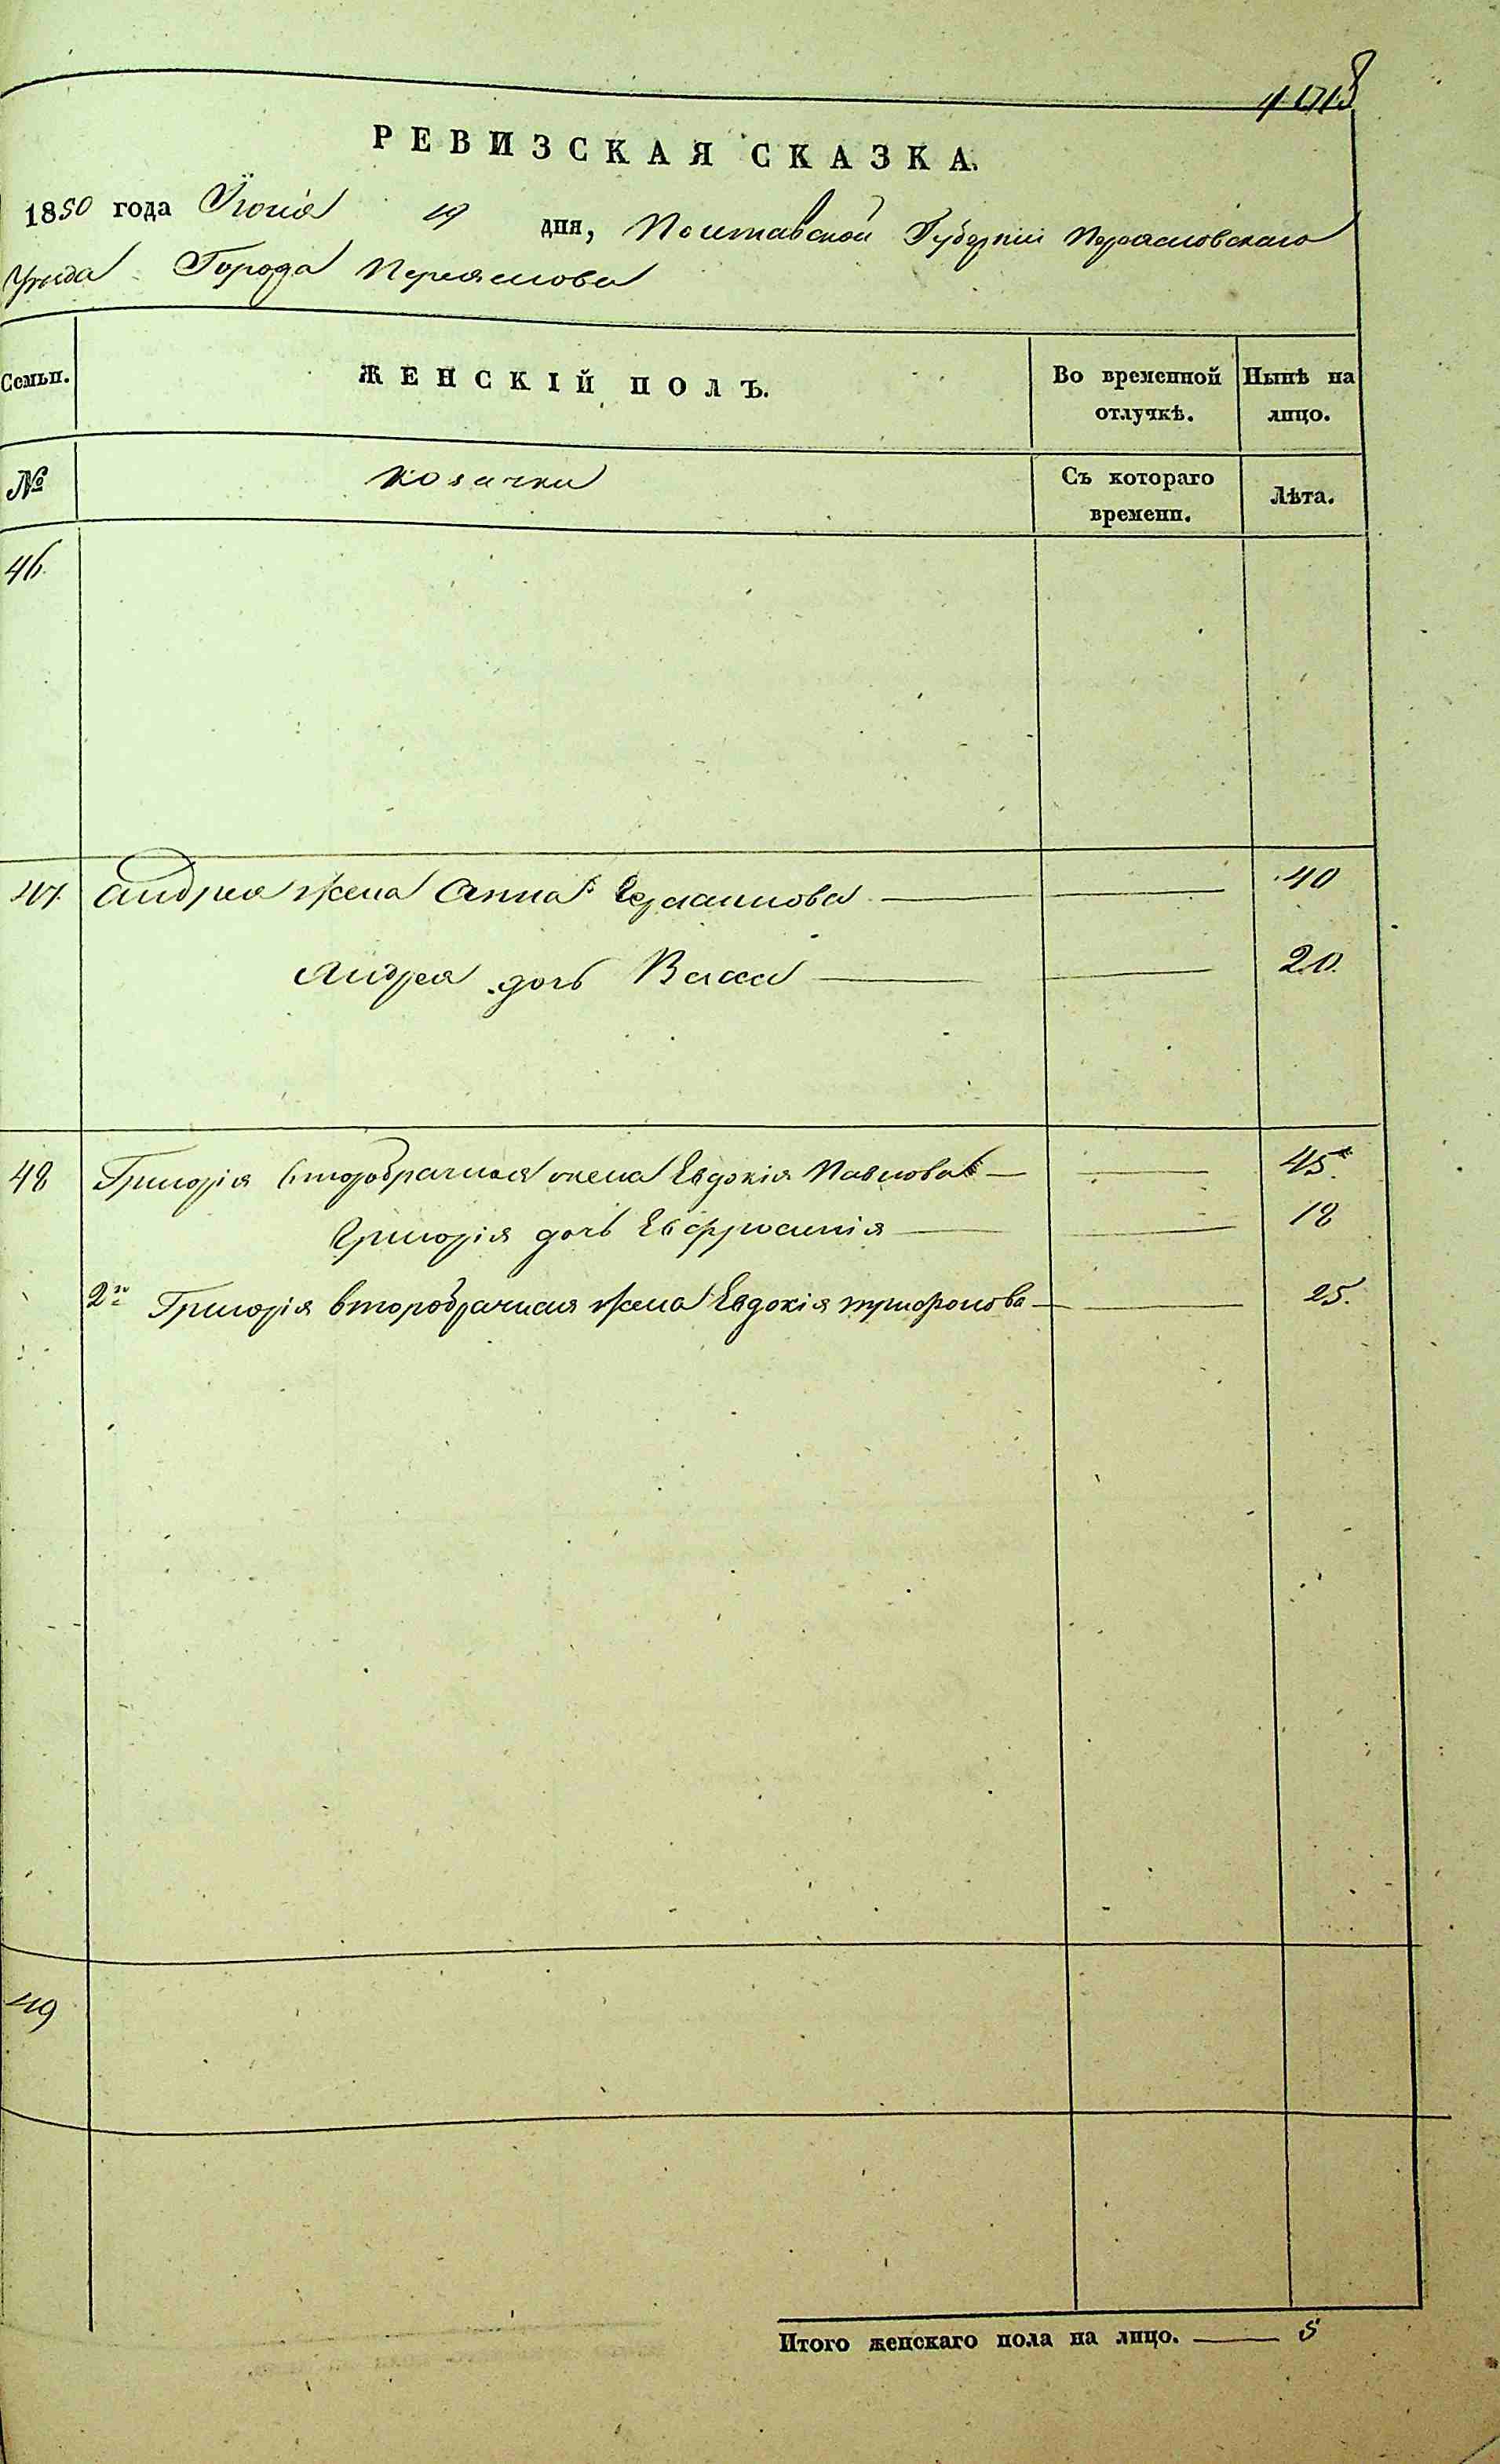 РЕВИЗСКАЯ СКАЗКА.
1850 года Іюнія 19 дня, Полтавской Губерніи Переяславского
Уезда Города Переяслова
Семьи. ЖЕНСКІЙ ПОЛЪ. Во временной отлучкѣ. Нынѣ на лицо.
№ козачки Съ котораго времени. Лѣта.
46.
47. Андрея жена Анна 40
Андрея дочь Васса 20.
48 Григорія второбрачная жена Евдокія Павлова 45.
Григорія дочь Евфросинія 18
2го Григорія второбрачная жена Евдокія трифонова 25.
49
Итого женскаго пола на лицо. 5